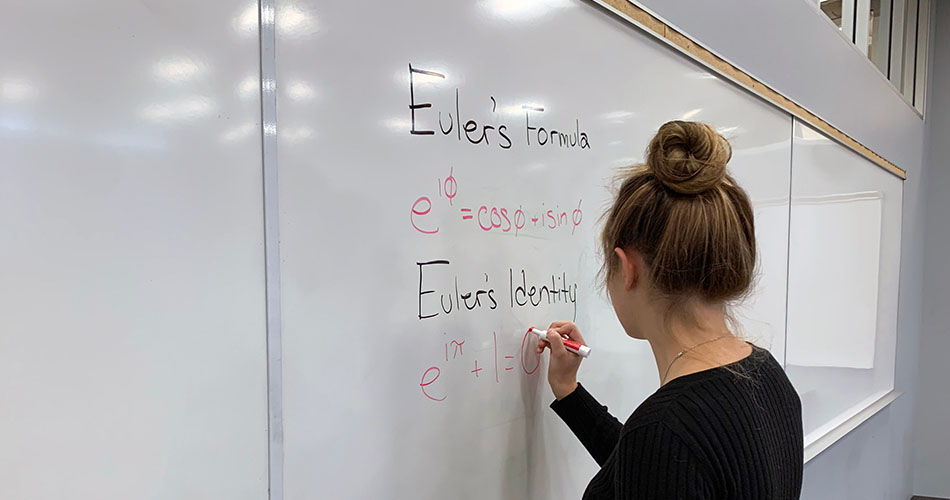 Euler's Formula
e^iφ = cosφ + isinφ
Euler's Identity
e^iπ + 1 = 0